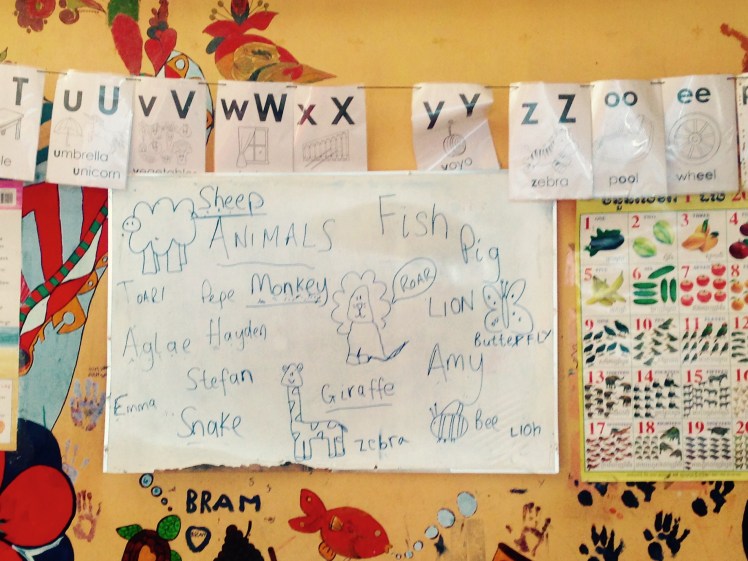 T
u U
v V
w W
x X
y Y
z Z
oo
ee
umbrella
unicorn
vegetables
yoyo
zebra
pool
wheel
Sheep
ANIMALS
Fish
Pig
TOARI
Pepe
Monkey
ROAR
LION
ButteRFLY
Aglae
Hayden
Stefan
Giraffe
Amy
Emma
Snake
zebra
Bee
LIOn
BRAM
1
2
3
4
5
6
7
8
9
10
11
12
13
14
15
16
17
18
19
20